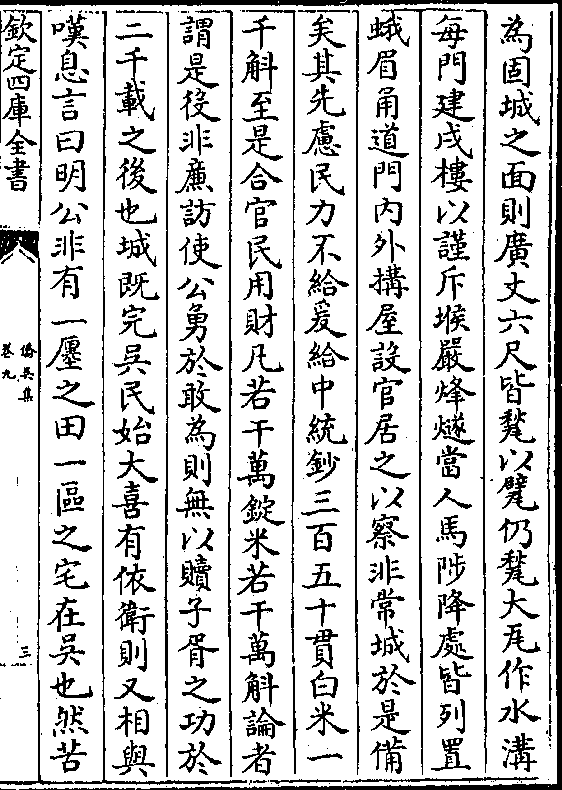 為固城之面則廣丈六尺皆甃以甓仍甃大瓦作水溝
每門建戍樓以謹斥堠嚴烽燧當人馬陟降處皆列置
蛾眉甬道門内外搆屋設官居之以察非常城於是備
矣其先慮民力不給爰給中統鈔三百五十貫白米一
千斛至是合官民用財凡若干萬錠米若干萬斛論者
謂是役非亷訪使公勇於敢為則無以贖子胥之功於
二千載之後也城既完吳民始大喜有依衛則又相與
嘆息言曰明公非有一廛之田一區之宅在吳也然苦
欽定四庫全書
僑吳集
卷九
三